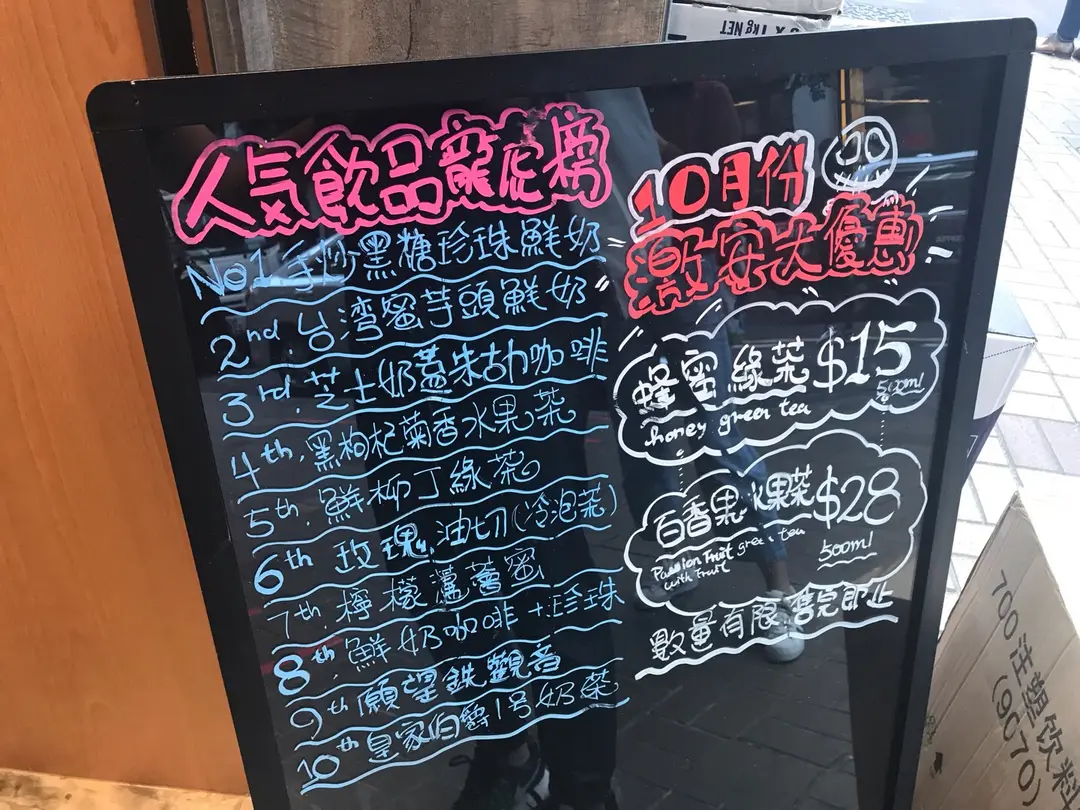 人気飲品龍虎榜
No1.手炒黑糖珍珠鮮奶
2nd.台湾蜜芋頭鮮奶
3rd.芝士奶蓋朱古力咖啡
4th.黑枸杞菊香水果茶
5th.鮮柳丁綠茶
6th 玫瑰油切(冷泡茶)
7th.檸檬蘆薈蜜
8th.鮮奶咖啡+珍珠
9th願望鉄觀音
10th皇家伯爵1号奶茶
10月份
激安大優惠
蜂蜜綠茶$15
500ml
honey green tea
百香果水果茶$28
Passion Fruit green tea
with Fruit
500ml
數量有限售完即止
X 1kg NET
700注塑饮料
(9C70)